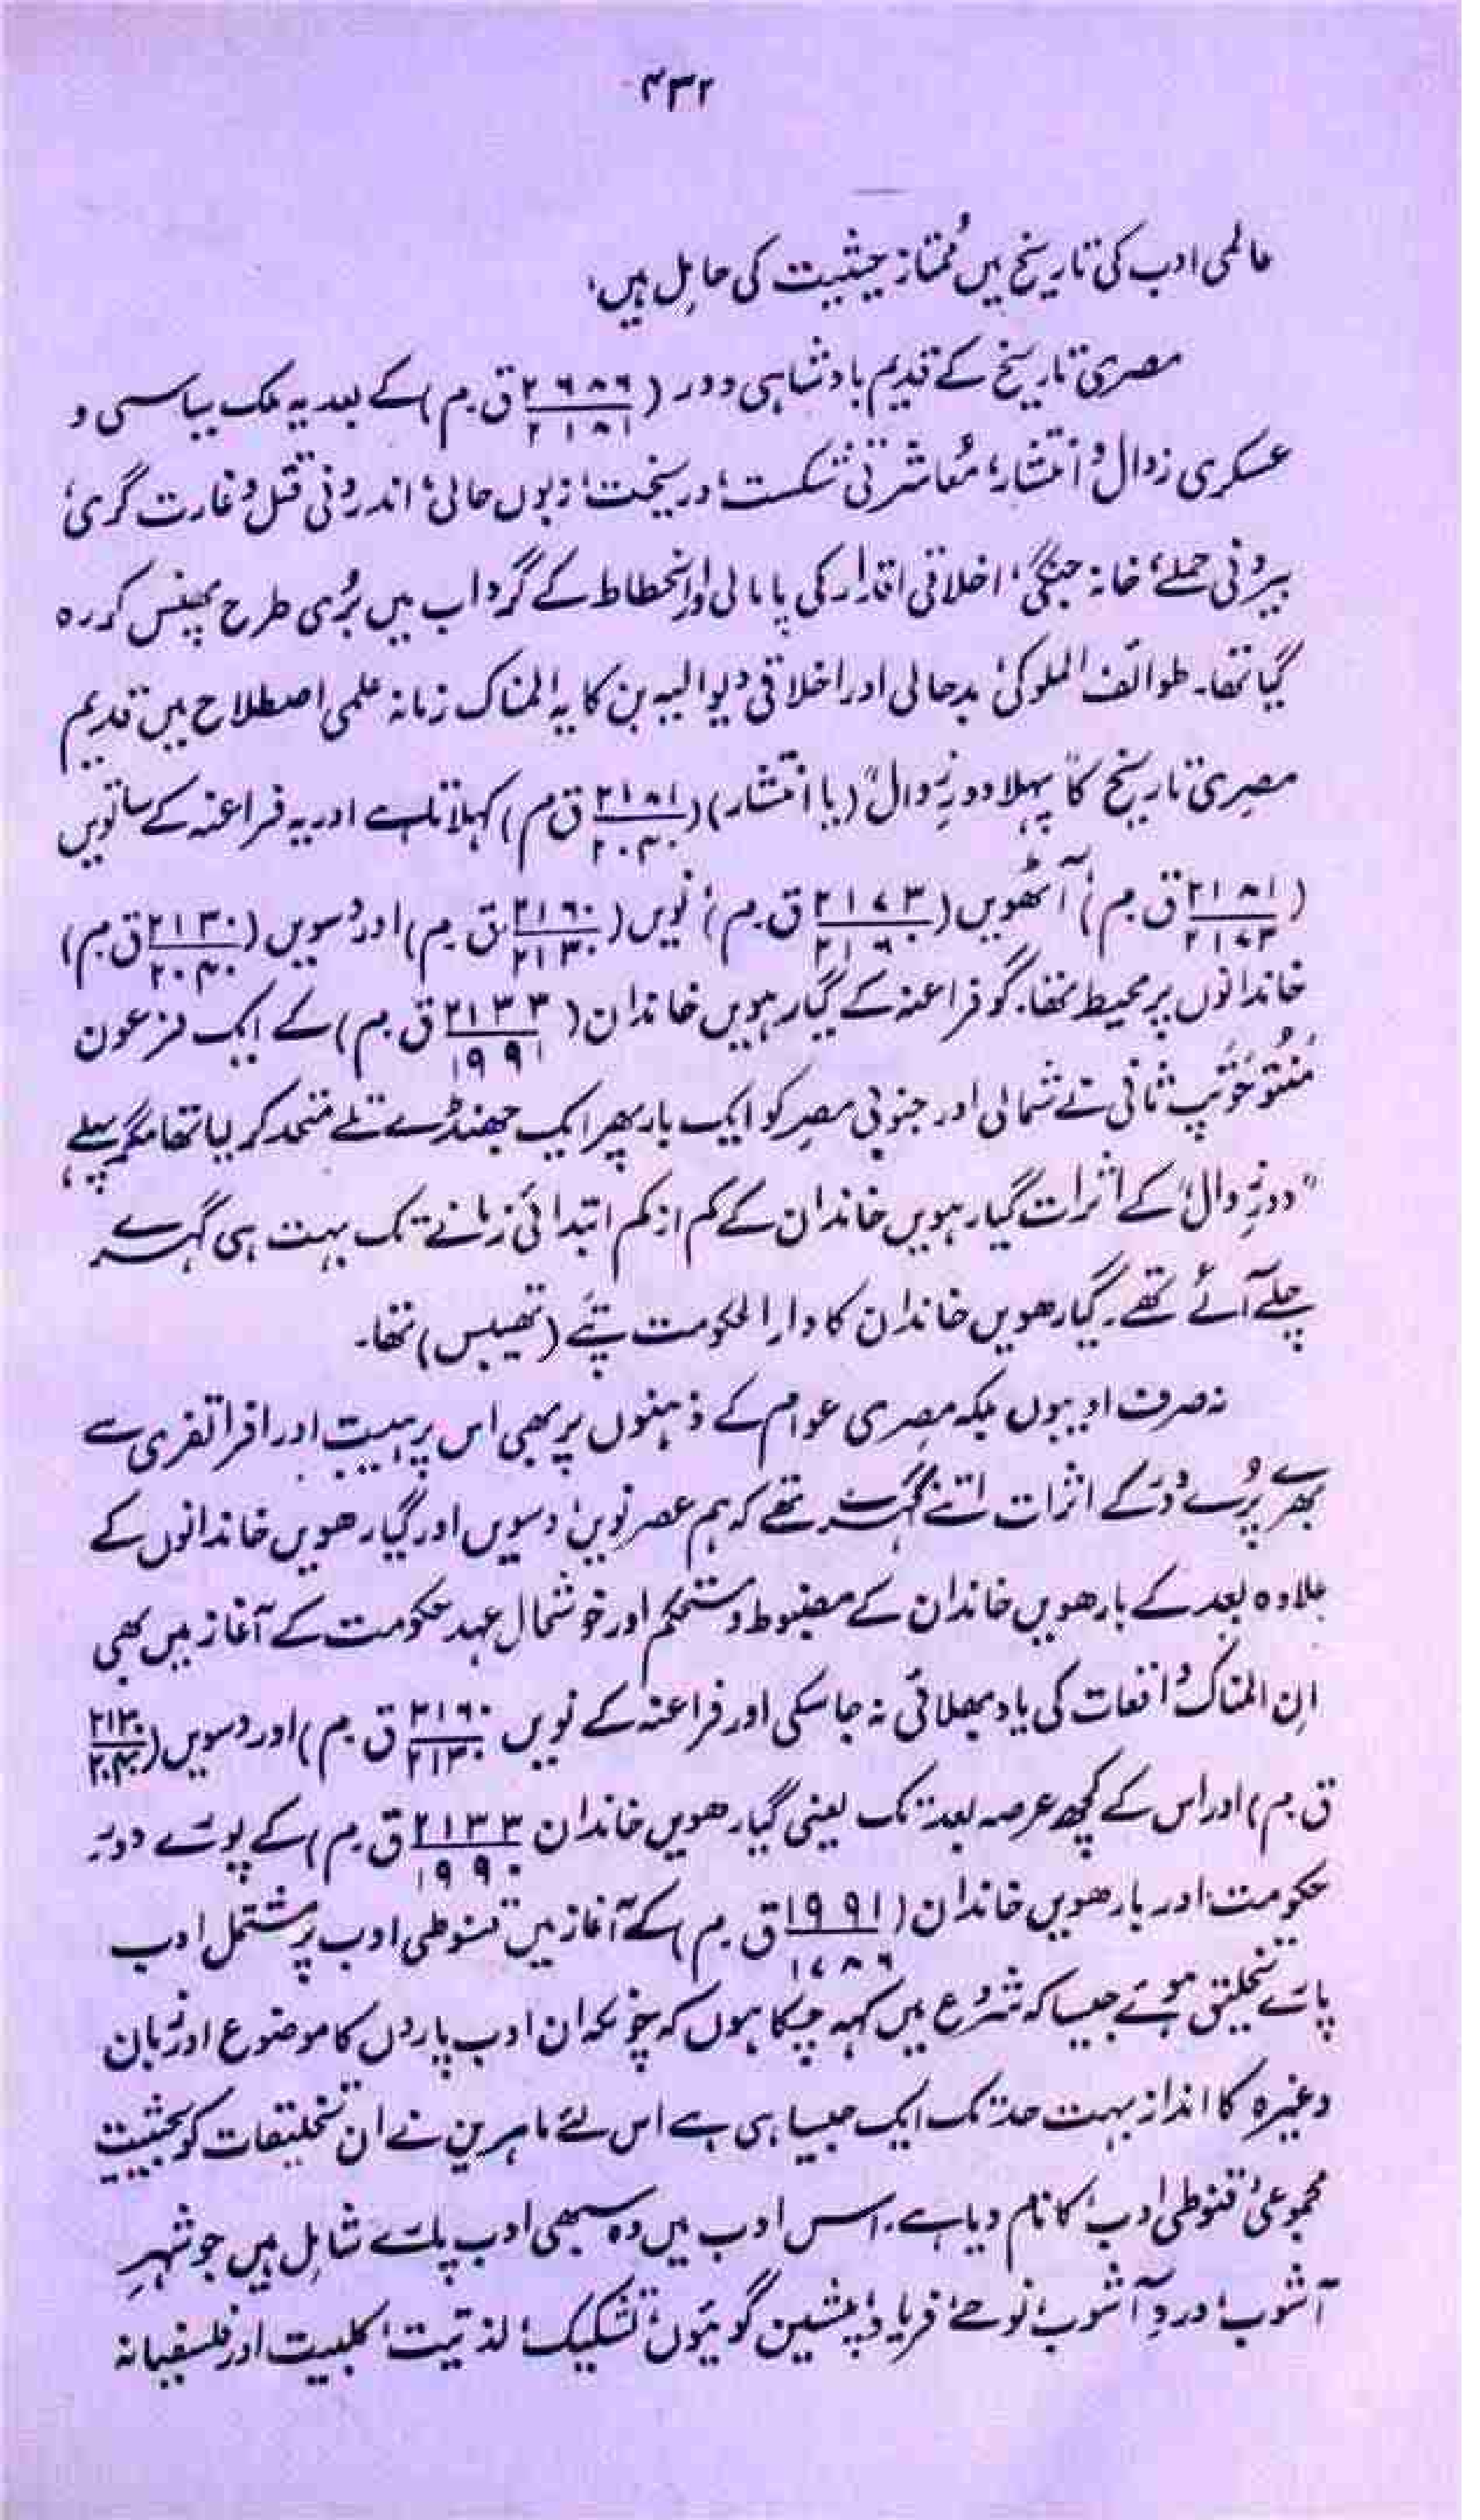 ۴۳۲
عالمی ادب کی تاریخ میں مُمتاز حیثیت کی حامِل ہیں۔
مصری تاریخ کے قدیم بادشاہی دور (۲۶۸۶/۲۱۸۱ ق۔م) کے بعد یہ ملک سیاسی و
عسکری زوال و انتشار، مُعاشرتی شکست و ریخت، زبوں حالی، اندرونی قتل و غارت گری،
بیرونی حملے، خانہ جنگی، اخلاقی اقدار کی پامالی اور انحطاط کے گرداب میں بُری طرح پھنس کر رہ
گیا تھا۔ طوائف الملوکی، بدحالی اور اخلاقی دیوالیہ پن کا یہ المناک زمانہ علمی اصطلاح میں قدیم
مصری تاریخ کا "پہلا دورِ زوال" (یا انتشار) (۲۱۸۱/۲۰۴۰ ق م) کہلاتا ہے اور یہ فراعنہ کے ساتویں
(۲۱۸۱/۲۱۷۳ ق۔م)، آٹھویں (۲۱۷۳/۲۱۶۰ ق۔م)، نویں (۲۱۶۰/۲۱۳۰ ق۔م) اور دسویں (۲۱۳۰/۲۰۴۰ ق۔م)
خاندانوں پر محیط تھا۔ گو فراعنہ کے گیارہویں خاندان (۲۱۳۳/۱۹۹۱ ق۔م) کے ایک فرعون
مَنتُو حُوتپ ثانی نے شمالی اور جنوبی مصر کو ایک بار پھر ایک جھنڈے تلے متحد کر لیا تھا مگر پہلے
"دورِ زوال" کے اثرات گیارہویں خاندان کے کم از کم ابتدائی زمانے تک بہت ہی گہرے
چلے آئے تھے۔ گیارھویں خاندان کا دارالحکومت پتے (تھیبس) تھا۔
نہ صرف ادیبوں بلکہ مصری عوام کے ذہنوں پر بھی اس پر ہیبت اور افراتفری سے
بھرے پُرے دور کے اثرات اتنے گہرے تھے کہ ہم عصر نویں، دسویں اور گیارھویں خاندانوں کے
علاوہ بعد کے بارھویں خاندان کے مضبوط و مستحکم اور خوشحال عہد حکومت کے آغاز میں بھی
اِن المناک واقعات کی یاد بھلائی نہ جا سکی اور فراعنہ کے نویں ۲۱۶۰/۲۱۳۰ ق۔م) اور دسویں (۲۱۳۰/۲۰۴۰
ق۔م) اور اس کے کچھ عرصہ بعد تک یعنی گیارھویں خاندان ۲۱۳۳/۱۹۹۰ ق۔م) کے پورے دور
حکومت اور بارھویں خاندان (۱۹۹۱/۱۷۸۶ ق۔م) کے آغاز میں قنوطی ادب پر مشتمل ادب
پارے تخلیق ہوئے جیسا کہ شروع میں کہہ چکا ہوں کہ چونکہ ان ادب پاروں کا موضوع اور زبان
وغیرہ کا انداز بہت حد تک ایک جیسا ہی ہے اس لئے ماہرین نے ان تخلیقات کو بحیثیت
مجموعی "قنوطی ادب" کا نام دیا ہے۔ اس ادب میں وہ سبھی ادب پارے شامِل ہیں جو شہرِ
آشوب، دردِ آشوب، نوحے، فریاد، پیشین گوئیوں، تشکیک، لذتیت، کلبیت اور فلسفیانہ